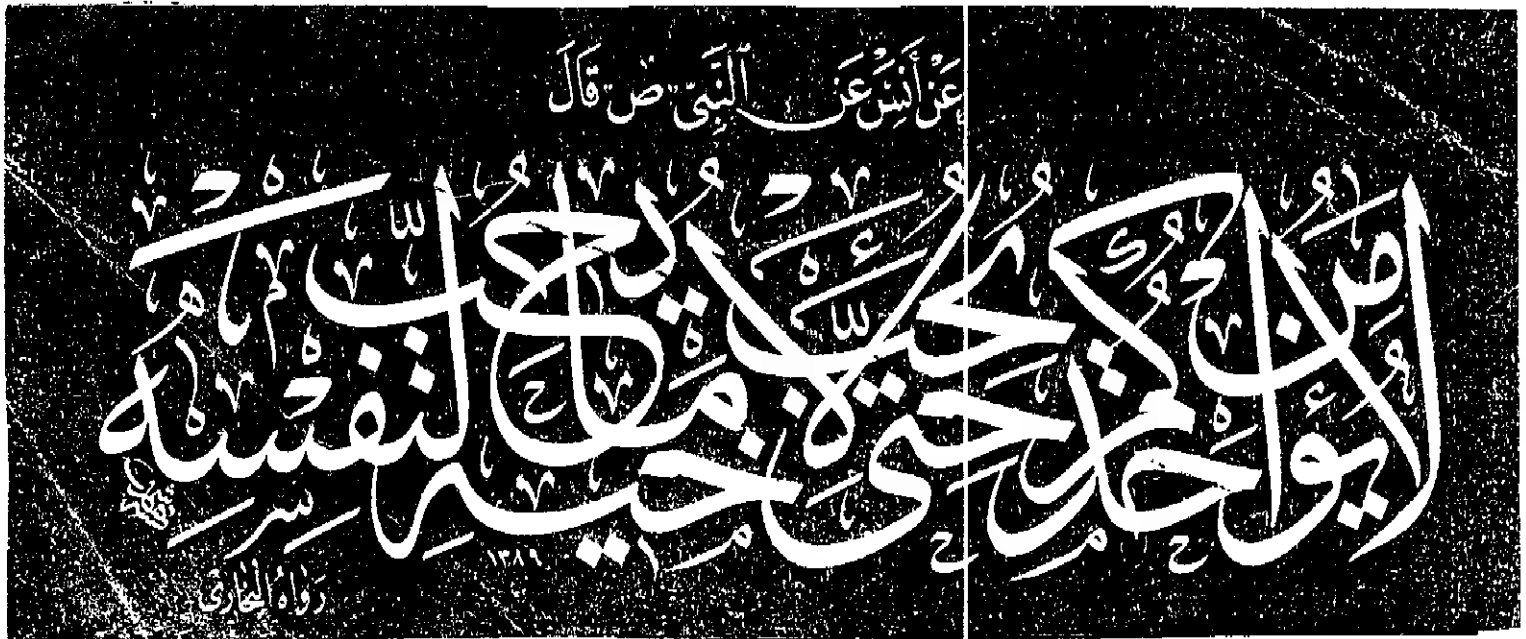 عَنْ أَنَسْ عَنِ ٱلنَّبِيّ ص قَالَ
لا يؤمن أحدكم حتى يحبّ لأخيه ما يحبّ لنفسه
١٣٨٩
رَوَاهُ البُخَارِى